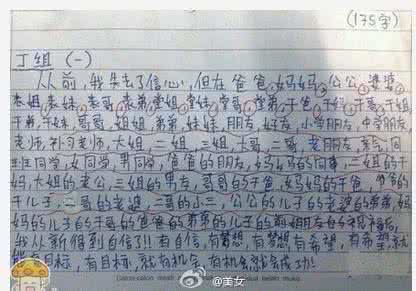 (175字)
丁组(一)
从前,我失去了信心,但在爸爸,妈妈,公公,婆婆,
表姐,表妹,表哥,表弟,堂姐,堂妹,堂哥,堂弟,干爸,干妈,干哥,干姐,
干弟,干妹,哥哥,姐姐,弟弟,妹妹,朋友,好友,小学朋友,中学朋友,
老师,补习老师,大姐,二姐,三姐,大哥,二哥,老朋友,
班同学,女同学,男同学,爸爸的朋友,妈妈的同事,二姐的干
妈,大姐的老公,三姐的男友,哥哥的干爸,妈妈的干爸,爷爷的
干儿子,二哥的老婆,二哥的小三,公公的儿子的老婆的弟弟,妈
妈的儿子的干哥的爸爸的弟弟的儿子的前妻朋友的
我从新得到自信了!!有自信,有梦想,有梦想,有希望,有希望,就
有目标,有目标,就有机会,有机会就会成功!
@美女